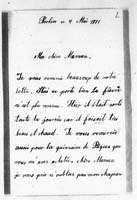 2
Berlin le 9 Mai 1881
Ma chère Maman,
Je vous remercie beaucoup de votre
lettre. Ici se porte bien la fièvre
n'est plus venue. Hier il était sorti
toute la journée car il faisait très
beau et chaud. Je vous remercie
aussi pour la de Pâques que
vous m'avez achetée. Chère Maman
je vous prie n'oubliez pas mon chapeau